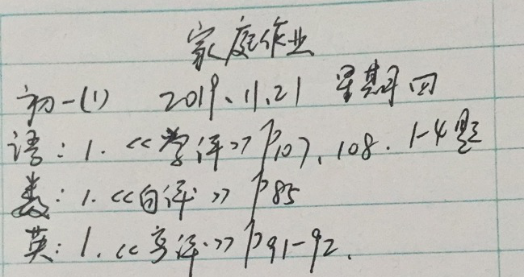 家庭作业
初一(1) 2019.11.21 星期四
语: 1. 《学评》P107、108. 1-4题
数: 1. 《自评》 P85
英: 1. 《学评》P91-92.